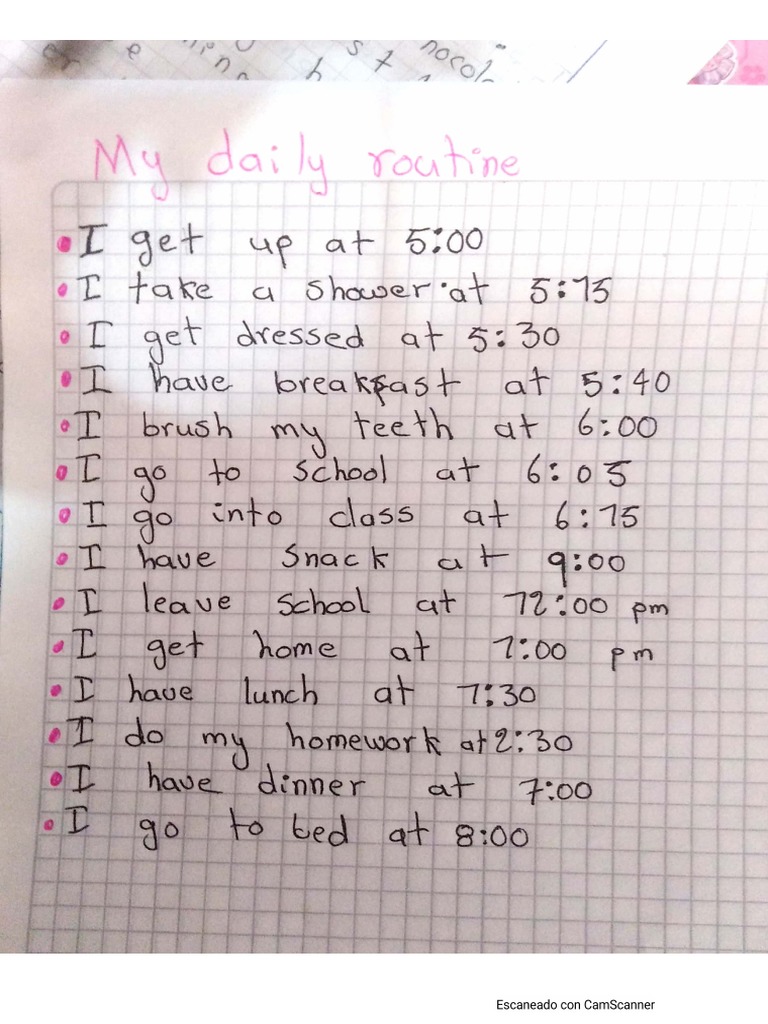 My daily routine
• I get up at 5:00
• I take a shower at 5:15
• I get dressed at 5:30
• I have breakfast at 5:40
• I brush my teeth at 6:00
• I go to school at 6:05
• I go into class at 6:15
• I have snack at 9:00
• I leave school at 12:00 pm
• I get home at 1:00 pm
• I have lunch at 1:30
• I do my homework at 2:30
• I have dinner at 7:00
• I go to bed at 8:00
Escaneado con CamScanner